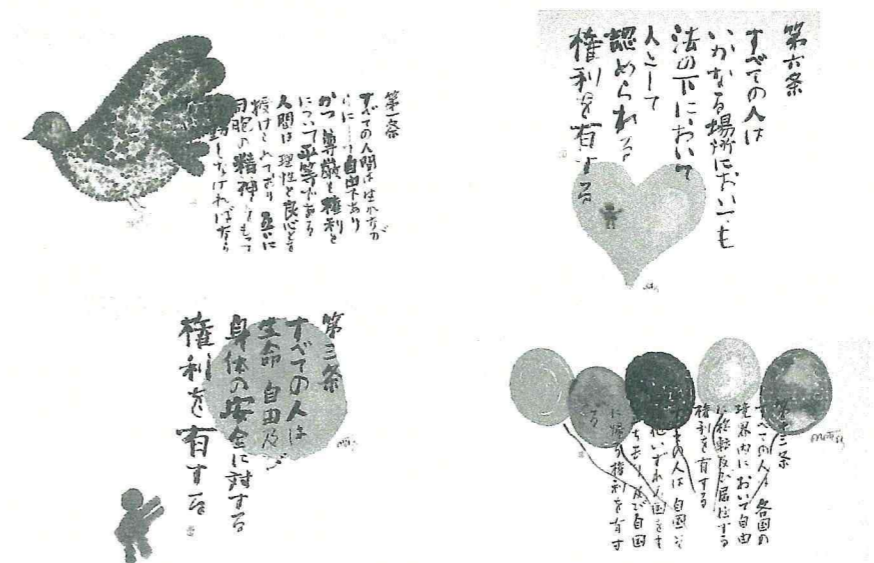 第一条
すべての人間は生れなが
らにして自由であり
かつ尊厳と権利と
について平等である
人間は理性と良心とを
授けられており互いに
同胞の精神をもって
動しなければなら
第六条
すべての人は
いかなる場所においても
法の下において
人として
認められる
権利を有する
第三条
すべての人は
生命 自由及び
身体の安全に対する
権利を有する
第十三条
すべての人は各国の
境界内において自由
に移転及び居住する
権利を有する
すべての人は自国そ
の他いずれの国をも
立ち去り及び自国
に帰る権利を有す
る